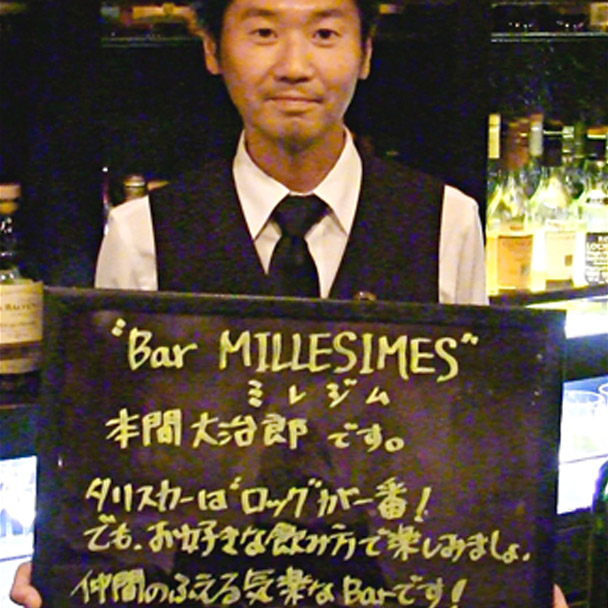 "Bar MILLESIMES"
ミレジム
本間大治郎です。
タリスカーは"ロック"が一番！
でも、お好きな飲み方で楽しみましょ。
仲間のふえる気楽なBarです！